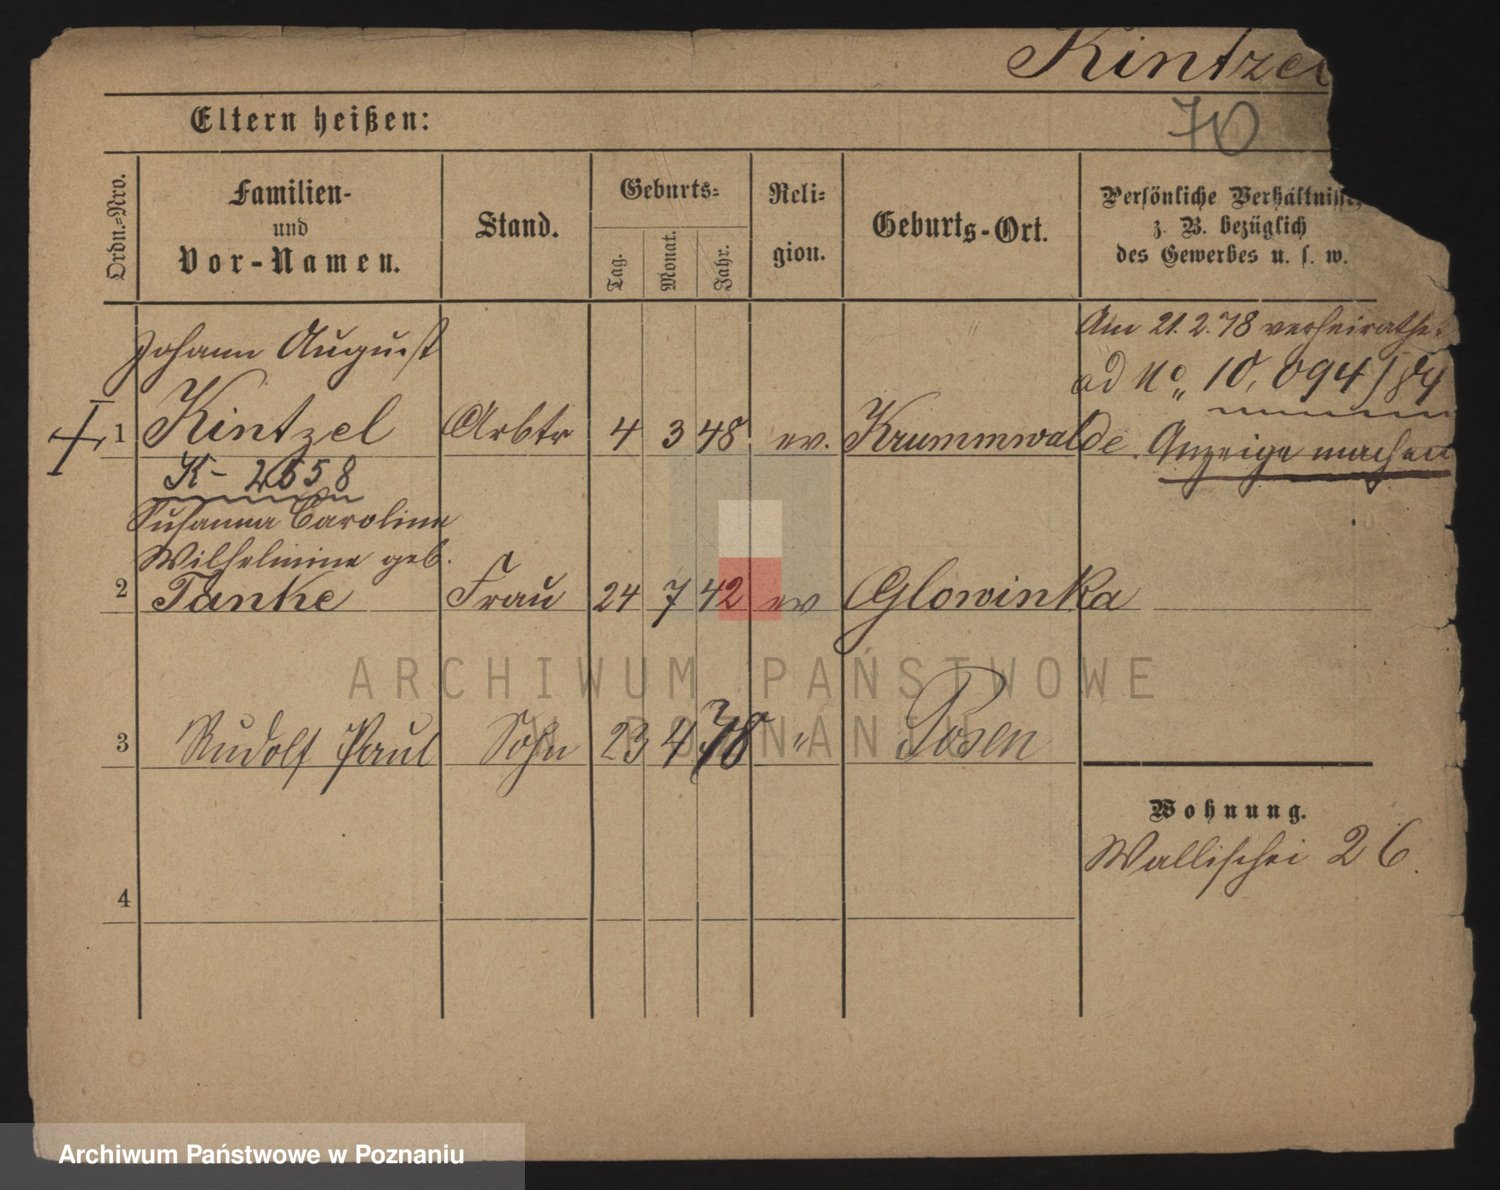 Kintzel
70
Eltern heißen:
Ordn.=Nro.
Familien-
und
Vor-Namen.
Stand.
Geburts=
Tag.
Monat.
Jahr.
Reli=
gion.
Geburts-Ort.
Persönliche Verhältnisse,
z. B. bezüglich
des Gewerbes u. s. w.
Johann August
1 Kintzel Arbtr 4 3 48. ev. Krummwalde.
K- 2658
Am 21.2.78 verheirathet
ad No 10,094/84
Anzeige machen
Susanna Caroline
Wilhelmine geb.
2 Tanke Frau 24 7 42 ev Glowinka
3 Rudolf Paul Sohn 23 4 78 " Posen
Wohnung.
Wallischei 26.
4
ARCHIWUM PAŃSTWOWE
W POZNANIU
Archiwum Państwowe w Poznaniu